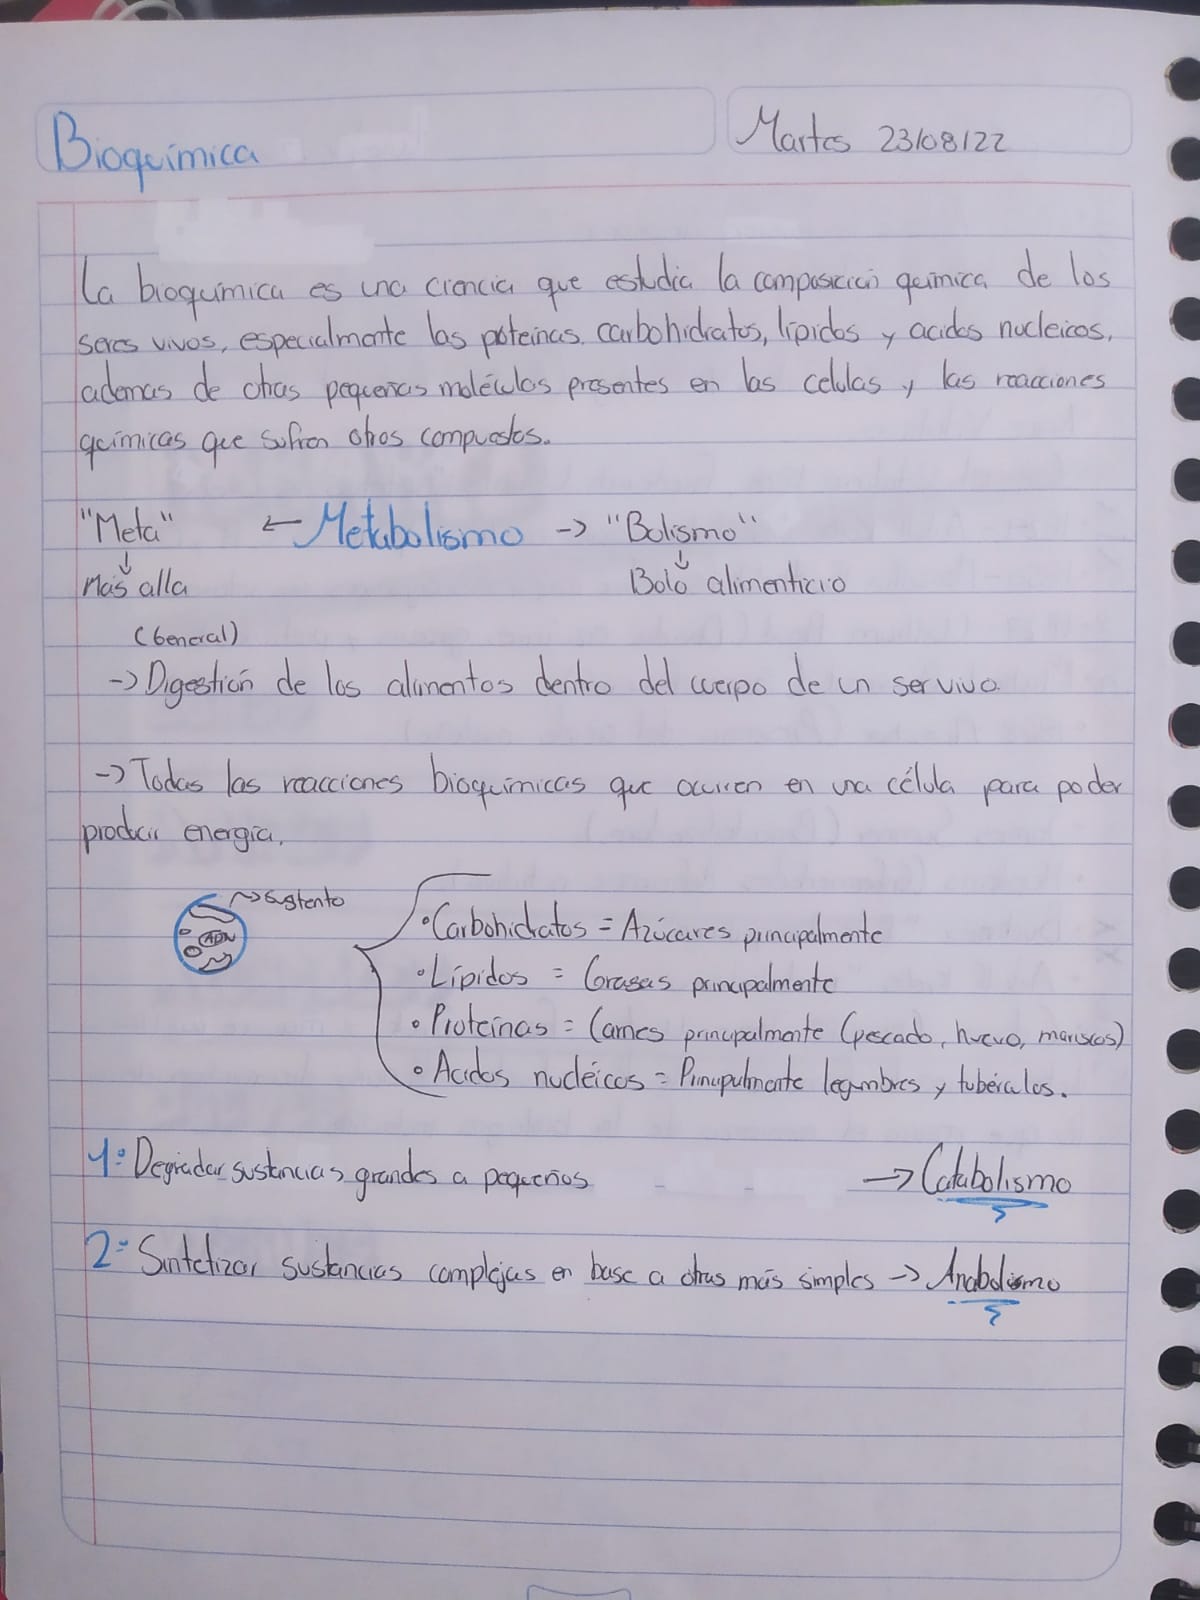 Bioquímica
Martes 23/08/22
La bioquímica es una ciencia que estudia la composición química de los
seres vivos, especialmente las proteínas, carbohidratos, lípidos y acidos nucleicos,
ademas de otras pequeñas moléculas presentes en las celulas y las reacciones
químicas que sufren otros compuestos.
"Meta" ← Metabolismo -> "Bolismo"
↓ ↓
Más alla Bolo alimenticio
(General)
-> Digestión de los alimentos dentro del cuerpo de un ser vivo.
-> Todas las reacciones bioquímicas que ocurren en una célula para poder
producir energía.
~> Sustento
ADN
• Carbohidratos = Azúcares principalmente
• Lípidos = Grasas principalmente
• Proteínas = Carnes principalmente (pescado, huevo, mariscos)
• Acidos nucléicos = Principalmente legumbres y tubérculos.
1º Degradar sustancias grandes a pequeños -> Catabolismo
2º Sintetizar sustancias complejas en base a otras más simples -> Anabolismo